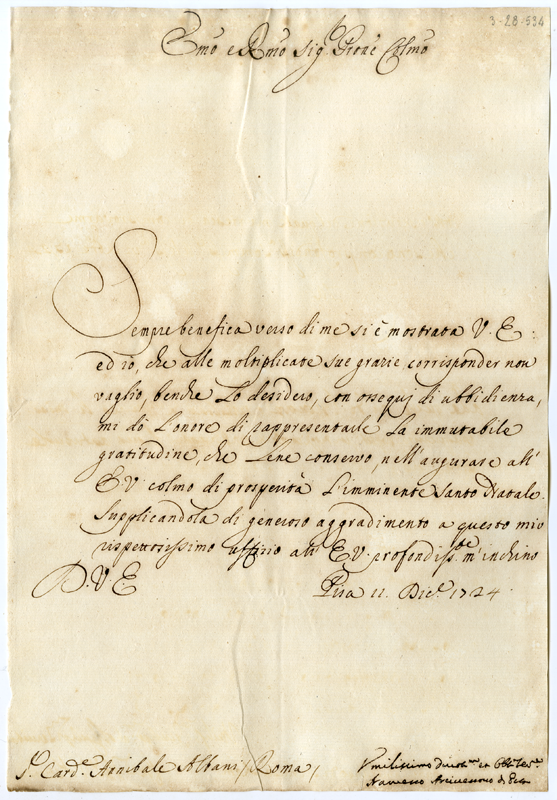 3-28-534
Emõ e Rmõ Sig.r Prone Colmõ
Sempre benefica verso di me si è mostrata V. E:
ed io, che alle moltiplicate sue grazie corrisponder non
vaglio, benche Lo desidero, con ossequj di ubbidienza,
mi dò L'onore di rappresentarle La immutabile
gratitudine, che Lene conservo, nell'augurare all'
E. V. colmo di prosperità L'imminente Santo Natale.
Supplicandola di generoso aggradimento a questo mio
rispettosissimo uffizio all' E. V. profondiss.te m'inchino
D. V. E
Pisa 11. Dic.e 1724.
S.r Card.e Annibale Albani / Roma /
Vmilissimo Oblig
Francesco Arcivescovo di Pisa